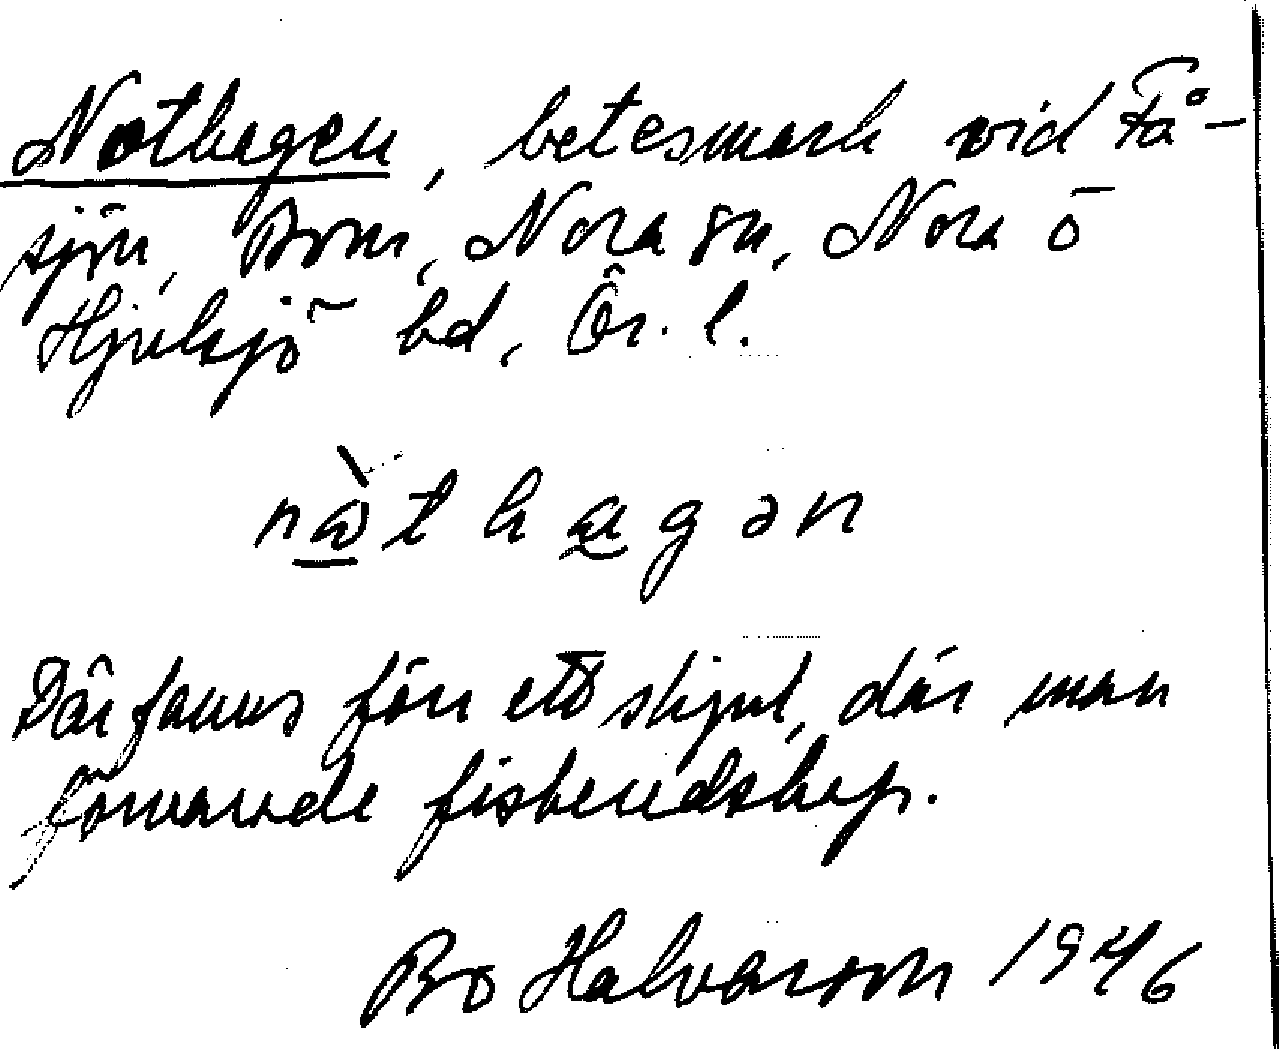 Nothagen, betesmark vid Få-
sjön, Born, Nora sn, Nora o
Hjulsjö bd, Ör. l.
nὼt hagən
Där fanns förr ett skjul, där man
förvarade fiskeredskap.
Bo Halvarson 1946